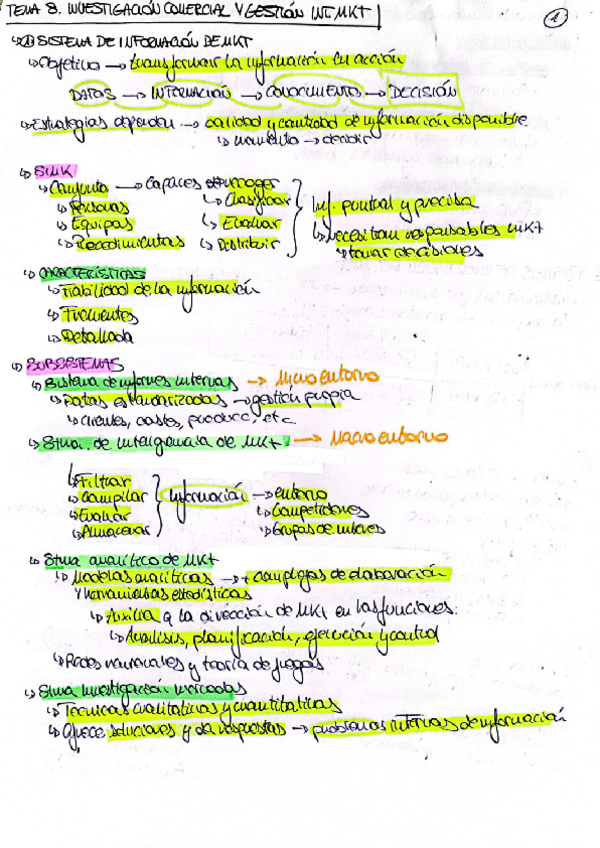 TEMA 8. INVESTIGACIÓN COMERCIAL Y GESTIÓN INT. MKT
1
↳ ① SISTEMA DE INFORMACIÓN DE MKT
↳ Objetivo → transformar la información en acción
DATOS → INFORMACIÓN → CONOCIMIENTOS → DECISIÓN
↳ Estrategias dependen → calidad y cantidad de información disponible
↳ momento → decidir
↳ SIMK
↳ Conjunto → capaces recoger
↳ Personas ↳ Clasificar
↳ Equipos ↳ Evaluar
↳ Procedimientos ↳ Distribuir
Inf. puntual y precisa
↳ necesitan responsables MKT
↳ tomar decisiones
↳ CARACTERÍSTICAS
↳ Fiabilidad de la información
↳ Frecuentes
↳ Detallada
↳ SUBSISTEMAS
↳ Sistema de informes internos → Microentorno
↳ Datos estandarizados → gestión propia
↳ clientes, costes, producc, etc.
↳ Stma. de inteligencia de MKT → Macroentorno
↳ Filtrar
↳ Compilar
↳ Evaluar
↳ Almacenar
Información → entorno
↳ Competidores
↳ Grupos de interés
↳ Stma analítico de MKT
↳ Modelos analíticos → + complejos de elaboración
y herramientas estadísticas
↳ Auxilia a la dirección de MKT en las funciones:
↳ Análisis, planificación, ejecución y control
↳ Redes neuronales y teoría de juegos
↳ Stma investigación mercados
↳ Técnicas cualitativas y cuantitativas
↳ Ofrece soluciones y da respuestas → problemas internos de información